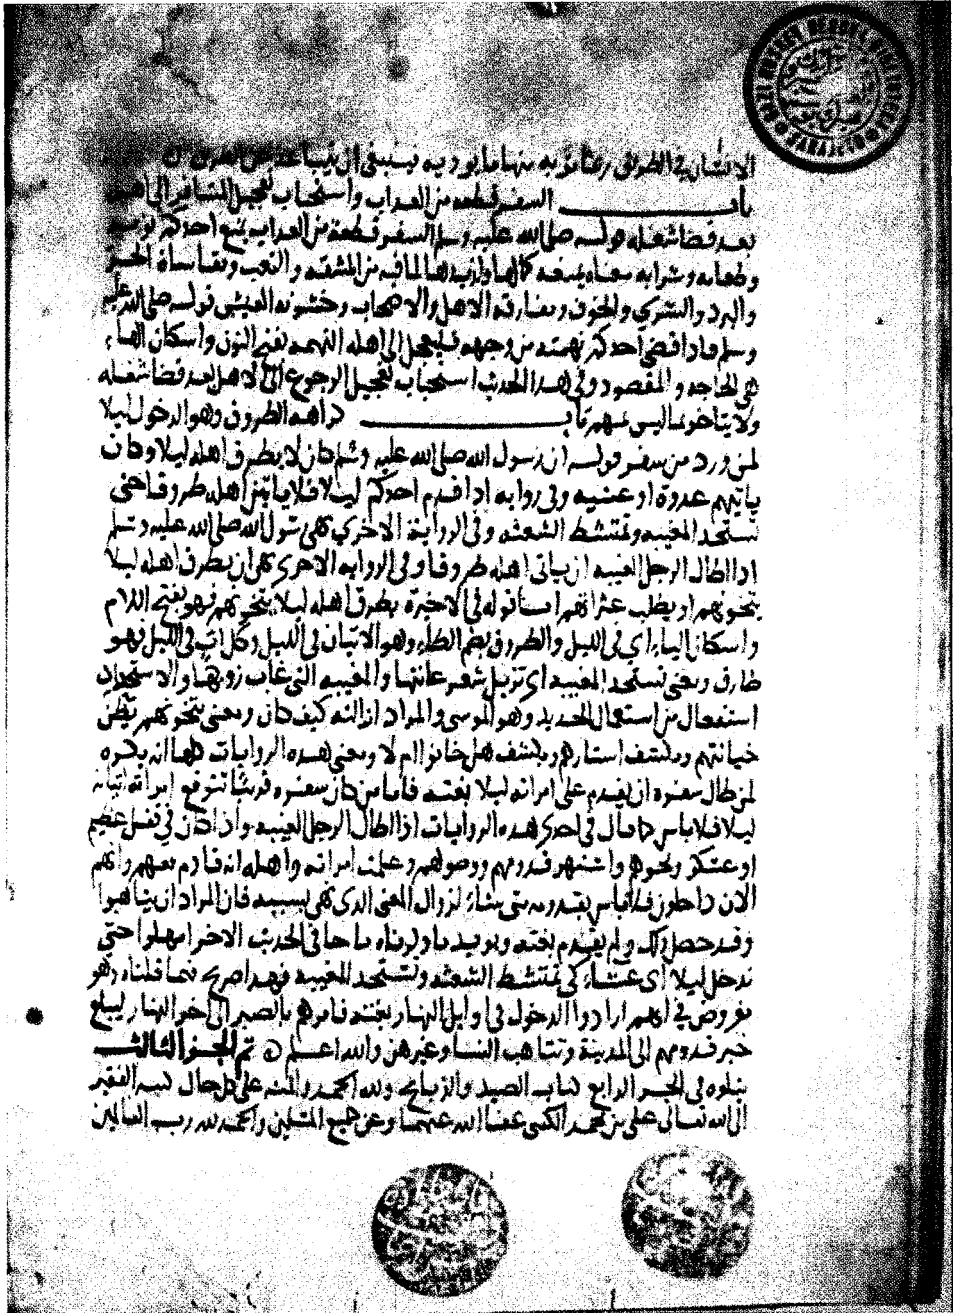 الانسان في الطريق وعثائر به منها ما يوذيه فينبغي ان يتباعد عن الطريق
باب السفر قطعة من العذاب واستحباب تعجيل المسافر الى اهله
بعد قضا شغله قوله صلى الله عليه وسلم السفر قطعة من العذاب يمنع احدكم نومه
وطعامه وشرابه معناه يمنعه كمالها ولذيذها لما فيه من المشقه والتعب ومقاساة الحر
والبرد والسري والخوف ومفارقة الاهل والاصحاب وخشونه العيش قوله صلى الله عليه
وسلم فاذا قضى احدكم نهمته من وجهه فليعجل الى اهله النهمه بفتح النون واسكان الهاء
هي الحاجه والمقصود وفي هذا الحديث استحباب تعجيل الرجوع الى الاهل بعد قضا شغله
ولا يتاخر بما ليس بمهم باب كراهه الطروق وهو الدخول ليلا
لمن ورد من سفر قوله ان رسول الله صلى الله عليه وسلم كان لا يطرق اهله ليلا وكان
ياتيهم غدوة او عشيه وفي روايه اذا قدم احدكم ليلا فلا ياتين اهله طروقا حتى
تستحد المغيبه وتمتشط الشعثه وفي الرواية الاخرى نهى رسول الله صلى الله عليه وسلم
اذا اطال الرجل الغيبه ان ياتي اهله طروقا وفي الروايه الاخرى نهى ان يطرق اهله ليلا
يتخونهم او يطلب عثراتهم اما قوله في الاخيرة يطرق اهله ليلا يتخونهم فهو بفتح اللام
واسكان الياء اي في الليل والطروق بضم الطاء وهو الاتيان في الليل وكل ات في الليل فهو
طارق ومعنى تستحد المغيبه اي تزيل شعر عانتها والمغيبه التي غاب زوجها والاستحداد
استفعال من استعمال الحديد وهو الموسى والمراد ازالته كيف كان ومعنى يتخونهم يظن
خيانتهم ويكشف استارهم ويكشف هل خانوا ام لا ومعنى هذه الروايات كلها انه يكره
لمن طال سفره ان يقدم على امراته ليلا بغته فاما من كان سفره قريبا تتوقع امراته اتيانه
ليلا فلا باس كما قال في احدى هذه الروايات اذا اطال الرجل الغيبه واذا كان في قفل عظيم
او عسكر ونحوهم واشتهر قدومهم ووصولهم وعلمت امراته واهله انه قادم معهم وانهم
الان داخلون فلا باس بقدومه متى شاء لزوال المعنى الذي نهى بسببه فان المراد ان يتاهبوا
وقد حصل ذلك ولم يقدم بغته ويويد ما ذكرناه ما جا في الحديث الاخر امهلوا حتى
ندخل ليلا اي عشاء كي تمتشط الشعثه وتستحد المغيبه فهذا صريح فيما قلناه وهو
مفروض في انهم ارادوا الدخول في اوايل النهار بغته فامرهم بالصبر الى اخر النهار ليبلغ
خبر قدومهم الى المدينة وتتاهب النسا وغيرهن والله اعلم تم الجزو الثالث
يتلوه في الجزو الرابع كتاب الصيد والذبايح ولله الحمد والمنه على كل حال كتبه الفقير
الى الله تعالى علي بن محمد عفا الله عنهما وعن جميع المسلمين والحمد لله رب العالمين